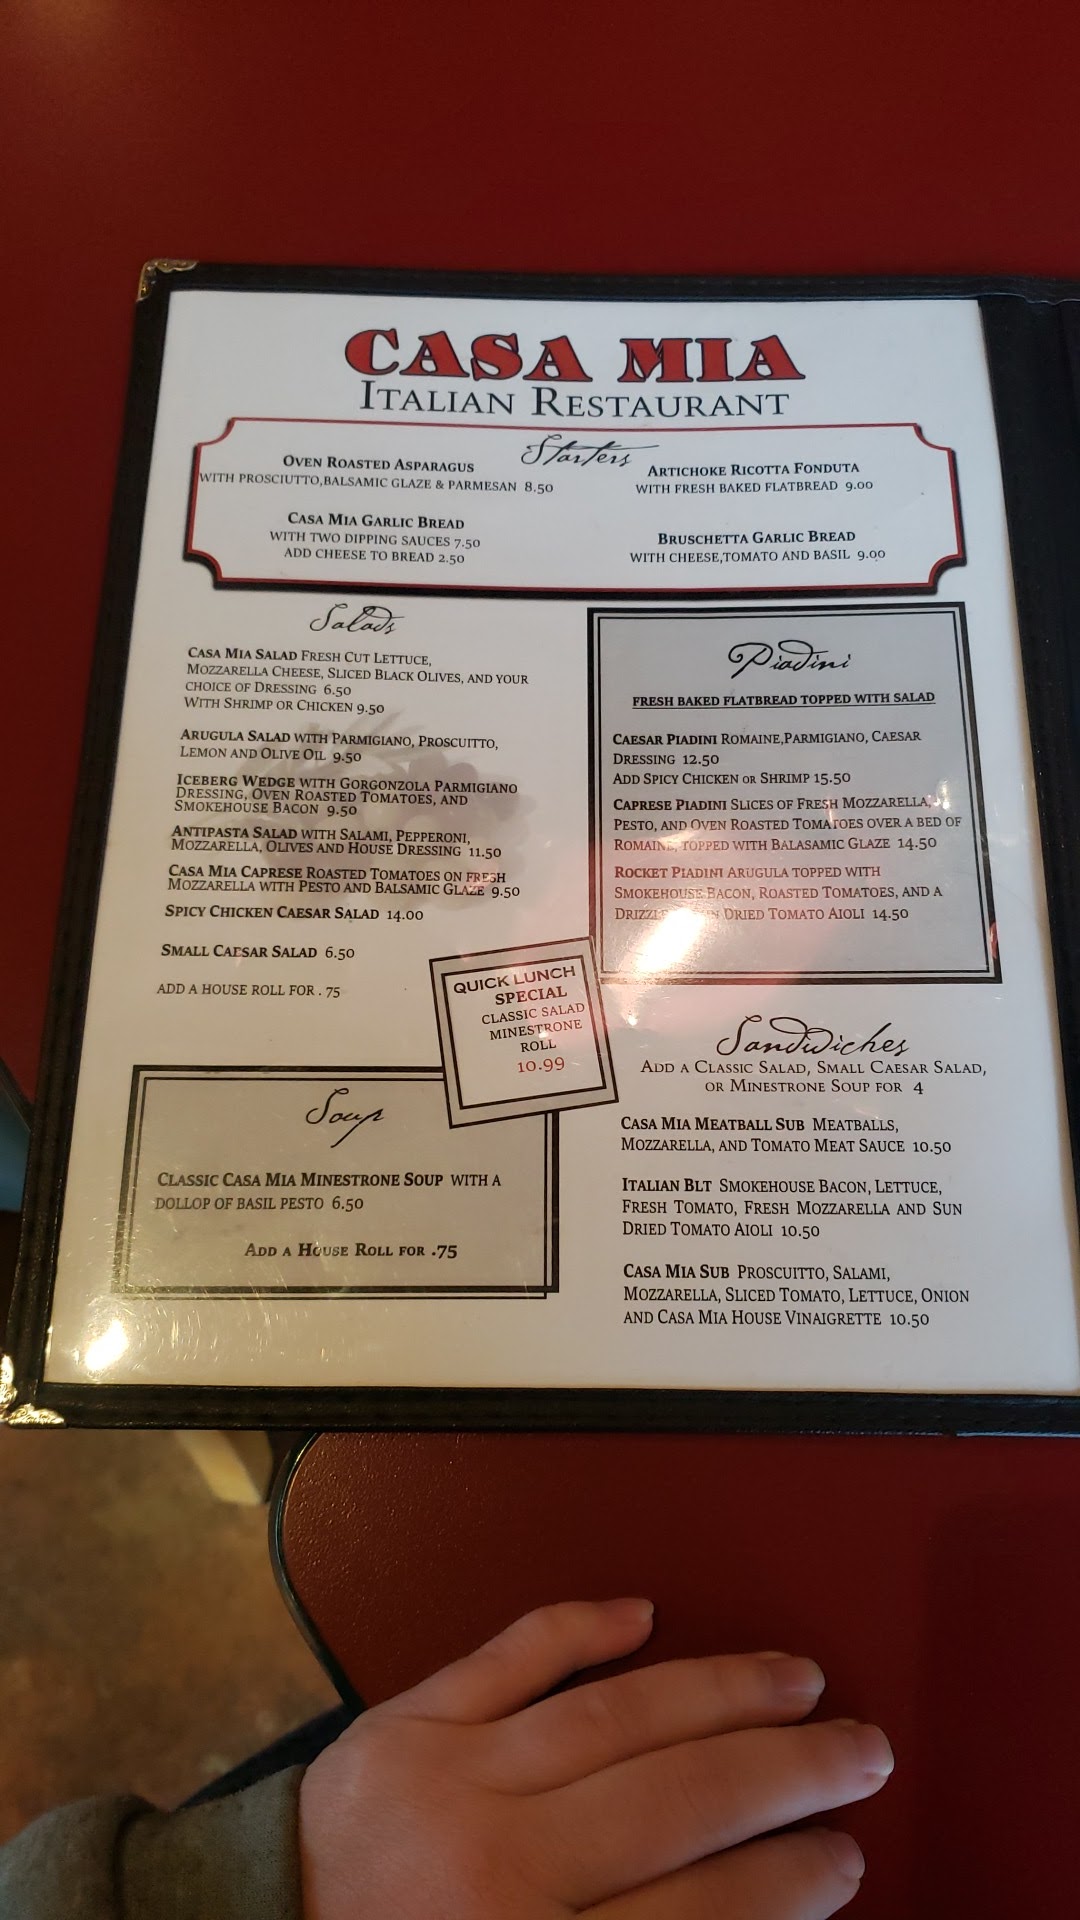 CASA MIA
ITALIAN RESTAURANT
Starters
OVEN ROASTED ASPARAGUS
WITH PROSCIUTTO,BALSAMIC GLAZE & PARMESAN 8.50
CASA MIA GARLIC BREAD
WITH TWO DIPPING SAUCES 7.50
ADD CHEESE TO BREAD 2.50
ARTICHOKE RICOTTA FONDUTA
WITH FRESH BAKED FLATBREAD 9.00
BRUSCHETTA GARLIC BREAD
WITH CHEESE,TOMATO AND BASIL 9.00
Salads
CASA MIA SALAD FRESH CUT LETTUCE,
MOZZARELLA CHEESE, SLICED BLACK OLIVES, AND YOUR
CHOICE OF DRESSING 6.50
WITH SHRIMP OR CHICKEN 9.50
ARUGULA SALAD WITH PARMIGIANO, PROSCUITTO,
LEMON AND OLIVE OIL 9.50
ICEBERG WEDGE WITH GORGONZOLA PARMIGIANO
DRESSING, OVEN ROASTED TOMATOES, AND
SMOKEHOUSE BACON 9.50
ANTIPASTA SALAD WITH SALAMI, PEPPERONI,
MOZZARELLA, OLIVES AND HOUSE DRESSING 11.50
CASA MIA CAPRESE ROASTED TOMATOES ON FRESH
MOZZARELLA WITH PESTO AND BALSMIC GLAZE 9.50
SPICY CHICKEN CAESAR SALAD 14.00
SMALL CAESAR SALAD 6.50
ADD A HOUSE ROLL FOR . 75
QUICK LUNCH
SPECIAL
CLASSIC SALAD
MINESTRONE
ROLL
10.99
Soup
CLASSIC CASA MIA MINESTRONE SOUP WITH A
DOLLOP OF BASIL PESTO 6.50
ADD A HOUSE ROLL FOR .75
Piadini
FRESH BAKED FLATBREAD TOPPED WITH SALAD
CAESAR PIADINI ROMAINE,PARMIGIANO, CAESAR
DRESSING 12.50
ADD SPICY CHICKEN OR SHRIMP 15.50
CAPRESE PIADINI SLICES OF FRESH MOZZARELLA,
PESTO, AND OVEN ROASTED TOMATOES OVER A BED OF
ROMAINE, TOPPED WITH BALASAMIC GLAZE 14.50
ROCKET PIADINI ARUGULA TOPPED WITH
SMOKEHOUSE BACON, ROASTED TOMATOES, AND A
DRIZZLE DRIED TOMATO AIOLI 14.50
Sandwiches
ADD A CLASSIC SALAD, SMALL CAESAR SALAD,
OR MINESTRONE SOUP FOR 4
CASA MIA MEATBALL SUB MEATBALLS,
MOZZARELLA, AND TOMATO MEAT SAUCE 10.50
ITALIAN BLT SMOKEHOUSE BACON, LETTUCE,
FRESH TOMATO, FRESH MOZZARELLA AND SUN
DRIED TOMATO AIOLI 10.50
CASA MIA SUB PROSCUITTO, SALAMI,
MOZZARELLA, SLICED TOMATO, LETTUCE, ONION
AND CASA MIA HOUSE VINAIGRETTE 10.50